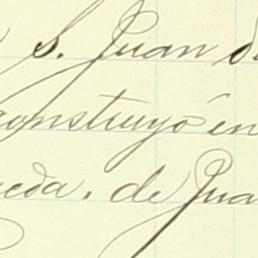 S. Juan d
construyó en
eda. de Jua